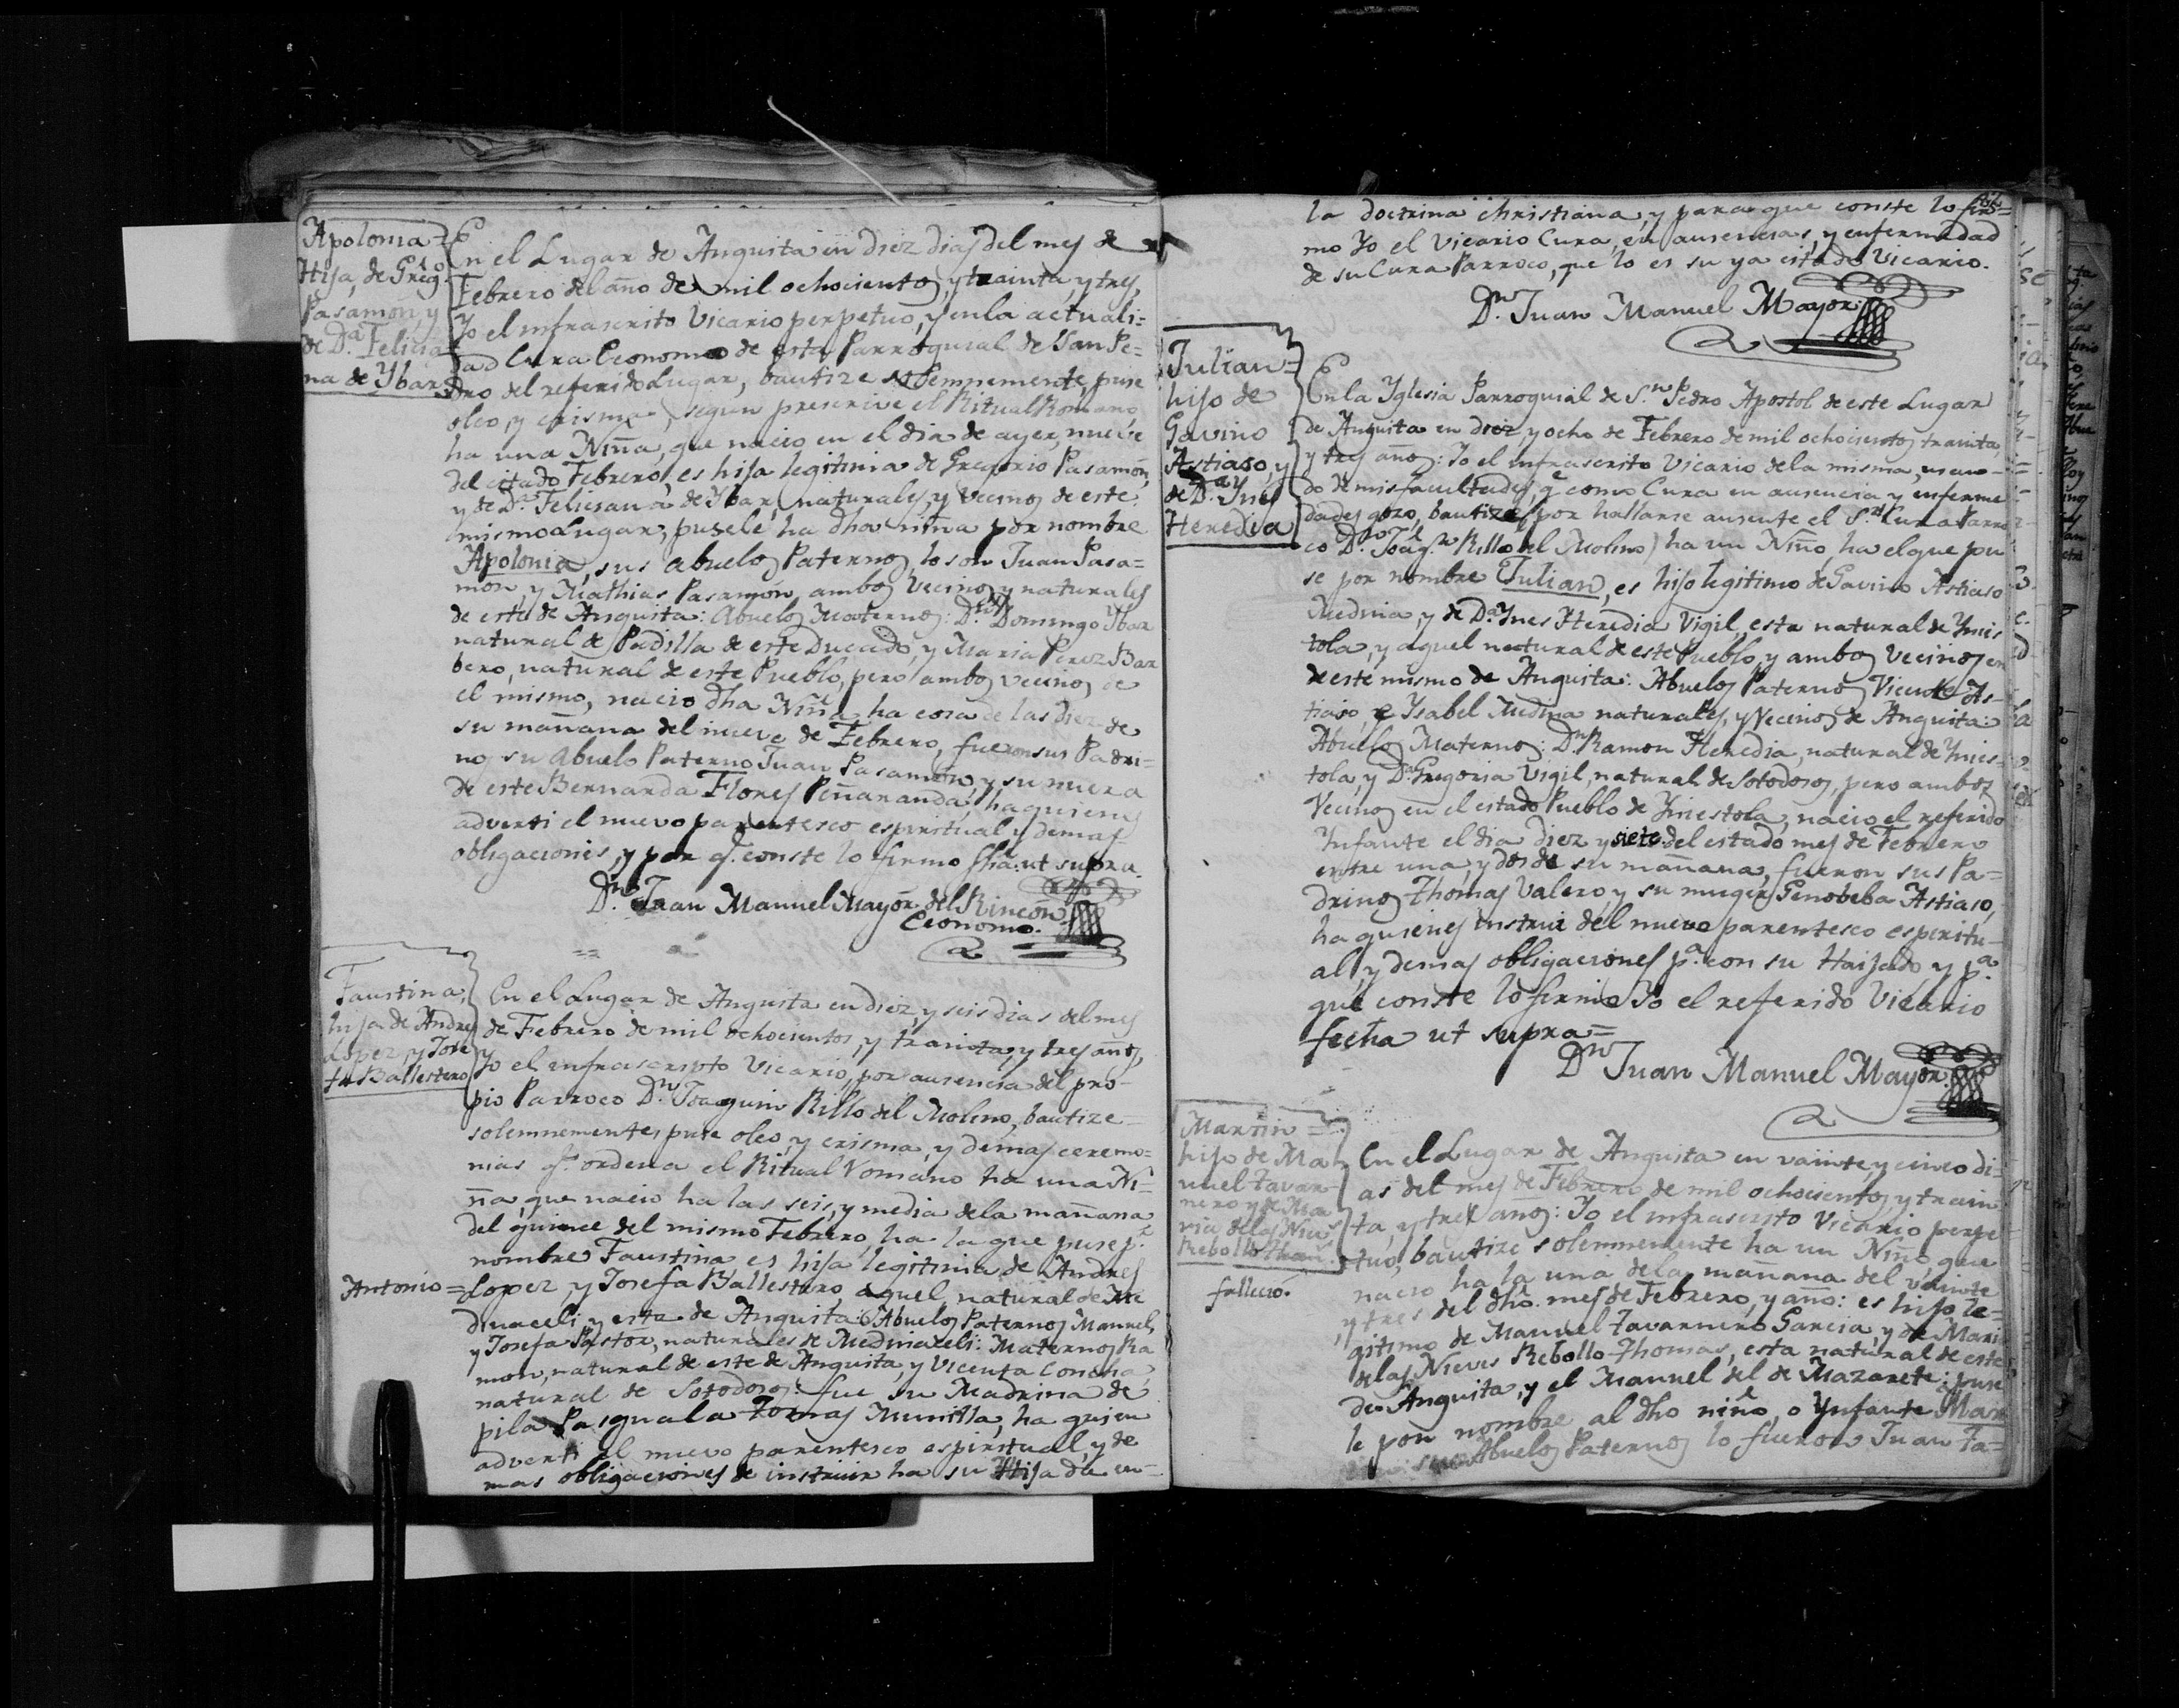 Apolonia=
Hija, de Greg.º
Pasamón, y
de D.ª Felicia
na de Ybar
En el Lugar de Anguita en diez dias del mes de
Febrero del año de mil ochocientos, y trainta, y tres,
Yo el infrascrito Vicario perpetuo, y en la actuali=
dad Cura Economo de esta Parroquial de San Pe=
dro del referido Lugar, bautize solemnemente, puse
oleo, y crisma, segun prescrive el Ritual Romano,
ha una Niña, que nacio en el dia de ayer, nueve
del citado Febrero, es hija legitima de Gregorio Pasamón,
y de D.ª Felicsana de Ybar, naturales, y vecinos de este
mismo Lugar, pusele ha dha niña por nombre
Apolonia, sus abuelos Paternos, lo son Juan Pasa=
món, y Mathias Pasamón, ambos vecinos y naturales
de este de Anguita: Abuelos Maternos: D.n Domingo Ybar
natural de Padilla de este Ducado, y Maria Perez Bar
bero, natural de este Pueblo, pero ambos vecinos de
el mismo, nacio dha Niña ha cosa de las diez de
su mañana del nueve de Febrero, fueron sus Padri=
nos su Abuelo Paterno Juan Pasamón, y su nuera
de este Bernarda Flores Peñaranda, ha quienes
adverti el nuevo parentesco espiritual y demas
obligaciones, y por q.e conste lo firmo fha. ut supra.
D.n Juan Manuel Mayor del Rincón
Economo.
Faustina,
hija de Andres
Lopez, y Jose
fa Ballestero
En el Lugar de Anguita en diez, y seis dias del mes
de Febrero de mil ochocientos, y trainta, y tres años,
Yo el enfrascripto Vicario, por ausencia del pro-
pio Parroco D.n Joaquin Rillo del Molino, bautize
solemnemente, puse oleo, y crisma, y demas ceremo=
nias q.e ordena el Ritual Romano ha una Ni=
ña, que nacio ha las seis, y media de la mañana
del quince del mismo Febrero, ha la que puse p.r
nombre Faustina es hija legitima de Andres
Antonio=
Lopez, y Josefa Ballestero, aquel natural de Me
dinaceli, y esta de Anguita: Abuelos Paternos Manuel,
y Josefa Pastor, naturales de Medinaceli: Maternos Ra
mon, natural de este de Anguita, y Vicenta
natural de Sotodosos: fue su Madrina de
pila Pasquala Tomas Munilla, ha quien
adverti el nuevo parentesco espiritual, y de
mas obligaciones de instruir ha su Hijada en
la doctrina christiana, y para que conste lo fir=
mo Yo el Vicario Cura, en ausencias, y enfermedad
de su Cura Parroco, que lo es su ya citado Vicario.
D.n Juan Manuel Mayor
Julian=
hijo de
Gavino
Astiaso, y
de D.ª Ynes
Heredia
En la Yglesia Parroquial de S.n Pedro Apostol de este Lugar
de Anguita en diez, y ocho de Febrero de mil ochocientos trainta,
y tres años: Yo el infrascrito Vicario de la misma, usan-
do de mis facultades, q.e como Cura en ausencia y enferme
dades gozo, bautize (por hallarse ausente el S.r Cura Parro
co D.n Joaq.n Rillo del Molino) ha un Niño, ha el que pu
se por nombre Julian, es hijo legitimo de Gavino Astiaso
Medina, y de D.ª Ynes Heredia Vigil, esta natural de Ynies
tola, y aquel natural de este Pueblo, y ambos vecinos en
de este mismo de Anguita: Abuelos Paternos Vicente As-
tiaso, e Ysabel Medina naturales, y Vecinos de Anguita:
Abuelos Maternos: D.n Ramon Heredia, natural de Ynies-
tola, y D.ª Gregoria Vigil, natural de Sotodosos, pero ambos
Vecinos en el citado Pueblo de Yniestola, nacio el referido
Ynfante el dia diez y siete del citado mes de Febrero
entre una, y dos de su mañana, fueron sus Pa=
drinos Thomas Valero, y su muger Genobeba Astiaso,
ha quienes instrui del nuevo parentesco espiritu-
al, y demas obligaciones p.ª con su Haijado, y p.ª
que conste lo firmo Yo el referido Vicario
fecha ut supra=
D.n Juan Manuel Mayor
Martin=
hijo de Ma
nuel Tavar-
nero y de Ma
ria de las Niev.s
Rebollo Thom.
falleció.
En el Lugar de Anguita en vainte, y cinco di-
as del mes de Febrero de mil ochocientos, y train
ta, y tres años: Yo el infrascrito Vicario perpe
tuo, bautize solemnemente ha un Niño que
nacio ha la una de la mañana del vainte
y tres del dho. mes de Febrero, y año: es hijo le=
gitimo de Manuel Tavarnero Garcia, y de Mari
de las Nieves Rebollo Thomas, esta natural de este
de Anguita, y el Manuel del de Mazarete: puse
le por nombre al dho niño, o Ynfante Mar
sus Abuelos Paternos lo fueron Juan Ta=